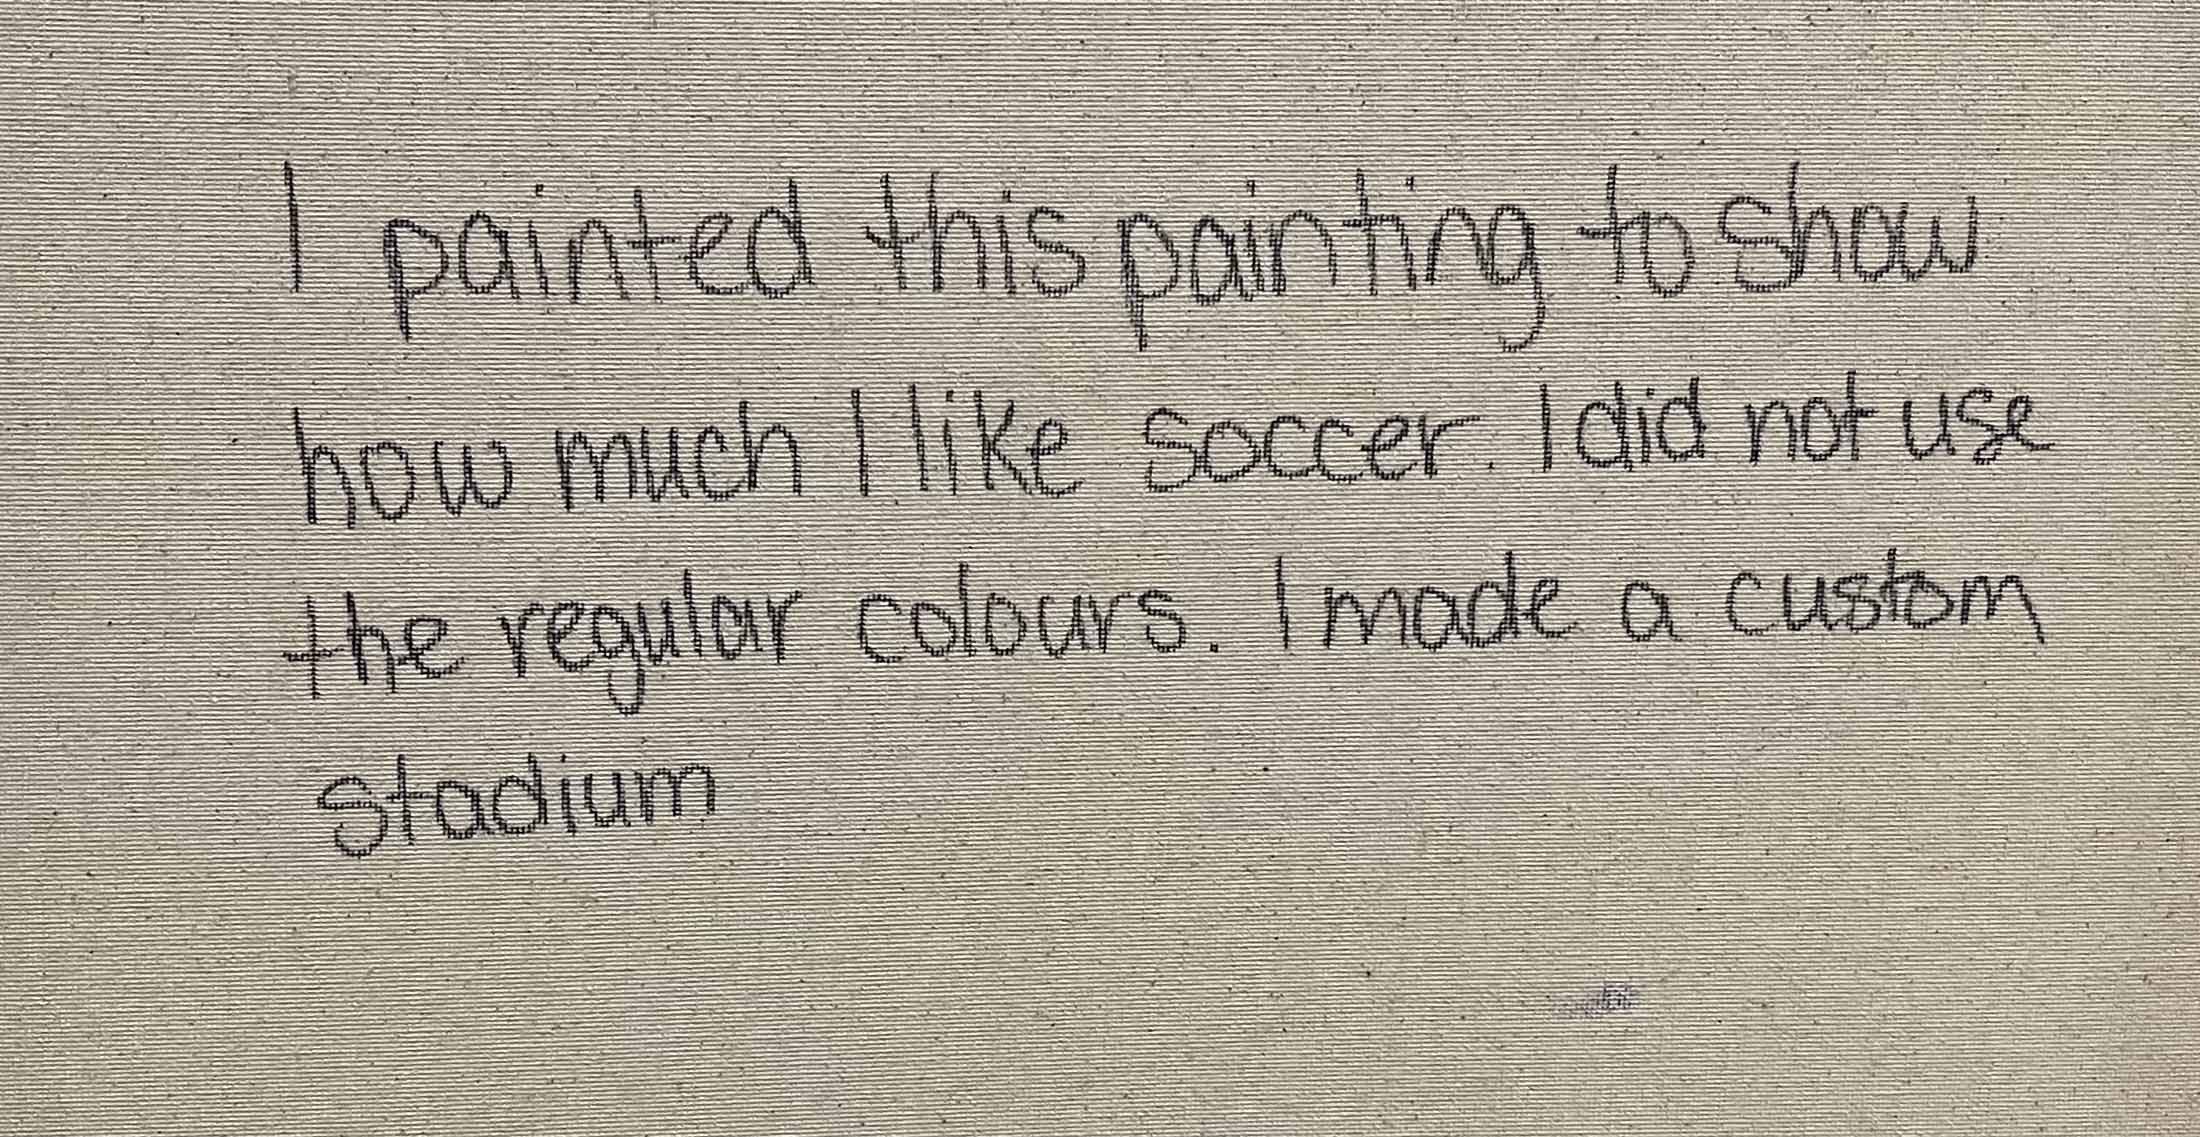 I painted this painting to show
how much I like soccer. I did not use
the regular colours. I made a custom
stadium